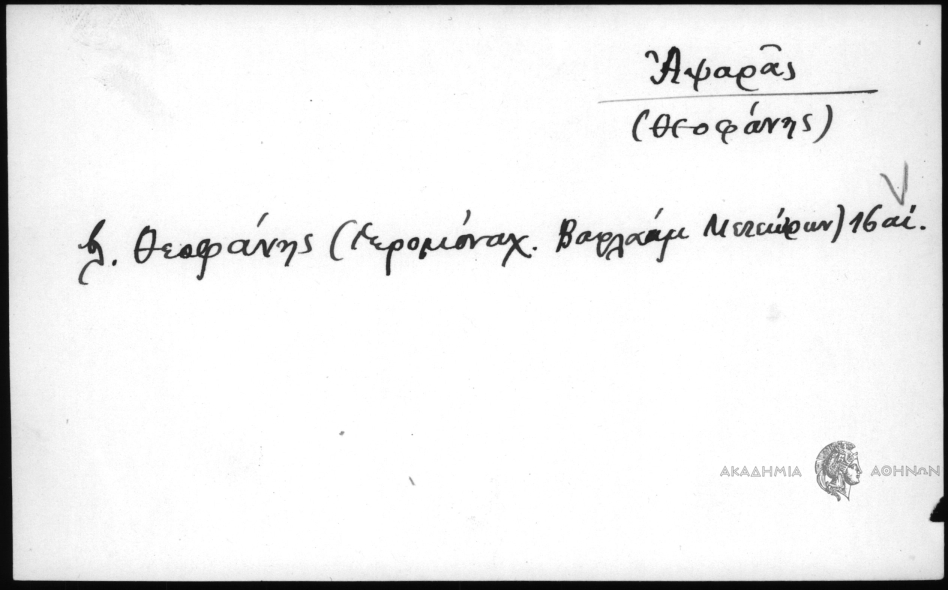 Ἀψαρᾶς
(Θεοφάνης)
βλ. Θεοφάνης (Ἱερομόναχ. Βαρλαάμ Μετεώρων) 16 αἰ.
ΑΚΑΔΗΜΙΑ ΑΘΗΝΩΝ